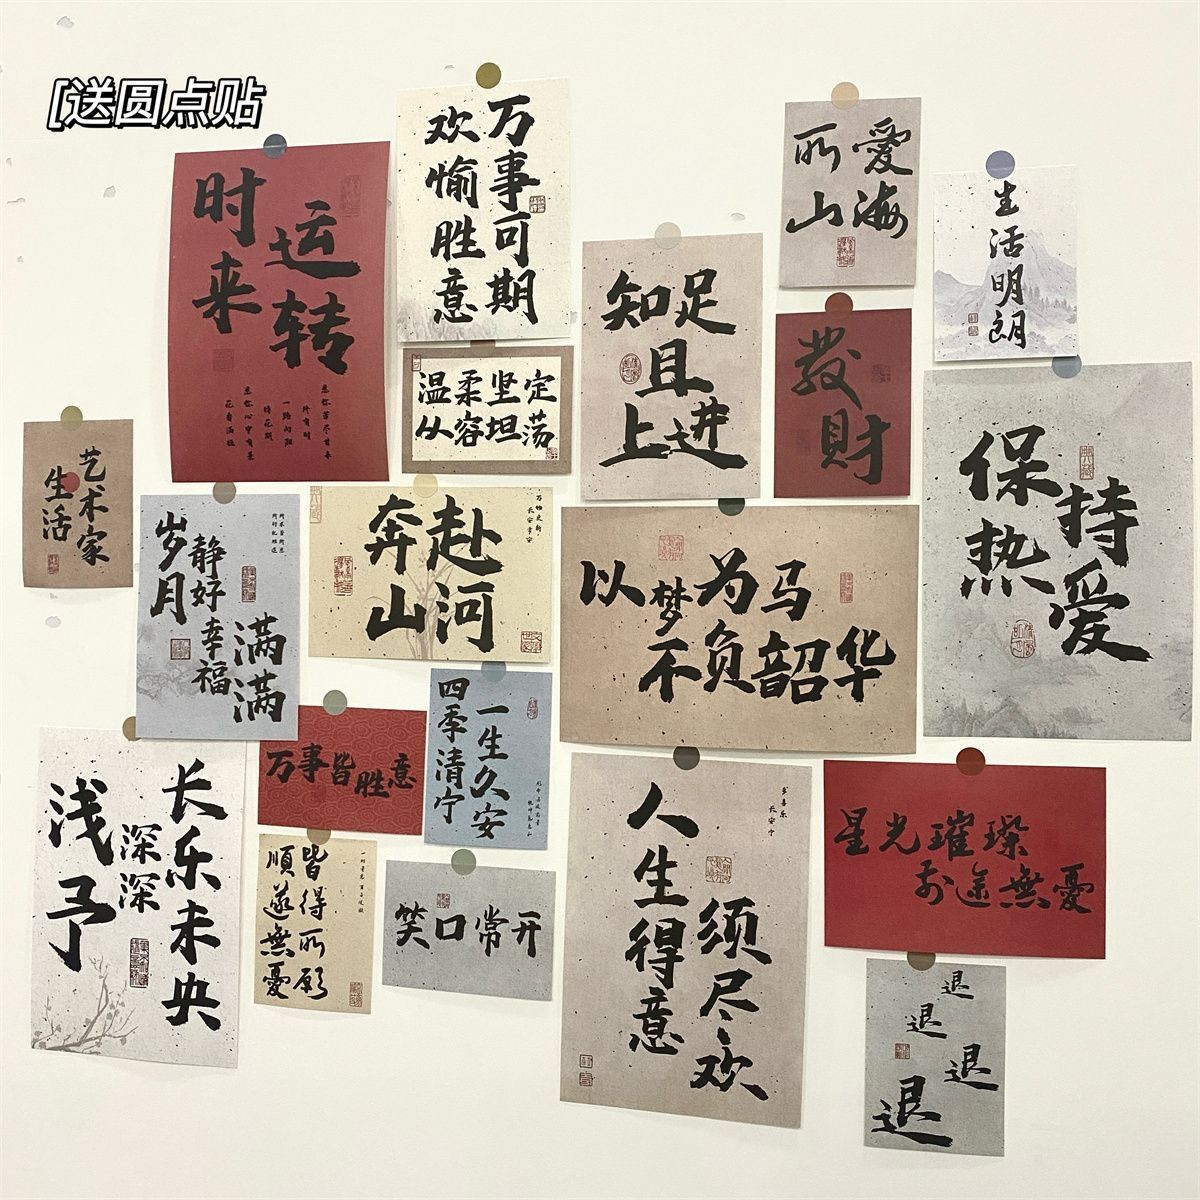 [送圆点贴
时来
运转
万事可期
欢愉胜意
爱海
所山
生活明朗
知足
且
上进
發财
温柔坚定
从容坦荡
保持
热爱
艺术家
生活
岁月
静好
幸福
满满
奔赴
山河
万物更新
长安常安
以梦为马
不负韶华
四季清宁
一生久安
万事皆胜意
长乐未央
深深
浅予
皆得所愿
順遂無憂
笑口常开
人生得意
须尽欢
多喜乐
长安宁
星光璀璨
前途無憂
退
退
退
退